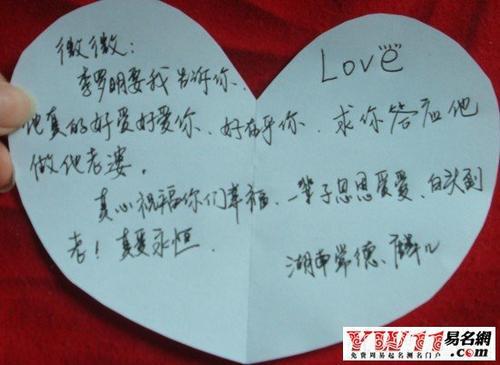 微微：
Love
李罗明要我告诉你、
他真的好爱好爱你、好在乎你、求你答应他
做他老婆。
真心祝福你们幸福、一辈子恩恩爱爱、白头到
老！真爱永恒.
湖南常德、
易名網
YW11
.com
免费周易起名测名门户